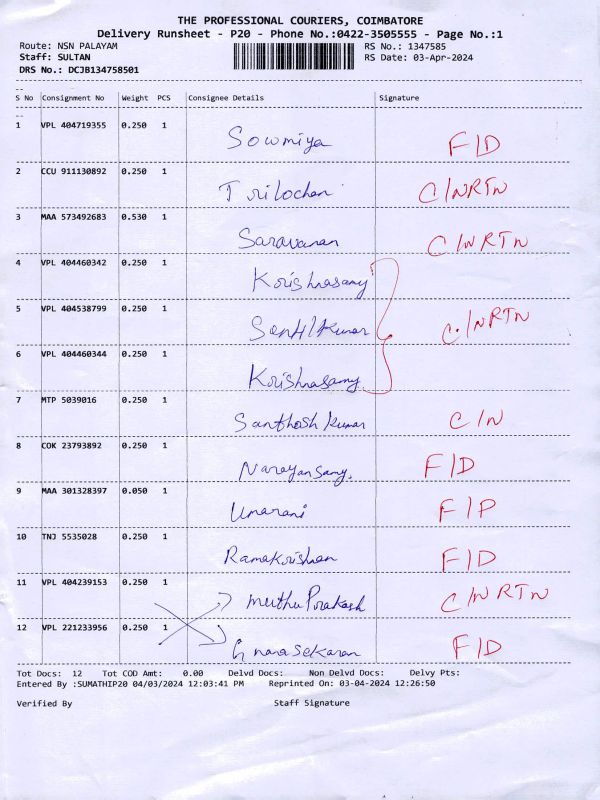 THE PROFESSIONAL COURIERS, COIMBATORE
Delivery Runsheet - P20 - Phone No.:0422-3505555 - Page No.:1
Route: NSN PALAYAM RS No.: 1347585
Staff: SULTAN RS Date: 03-Apr-2024
DRS No.: DCJB134758501
S No Consignment No Weight PCS Consignee Details Signature
1 VPL 404719355 0.250 1 Sowmiya F/D
2 CCU 911130892 0.250 1 Trilochan C/NRTN
3 MAA 573492683 0.530 1 Saravanan C/NRTN
4 VPL 404460342 0.250 1 Krishnasamy
5 VPL 404538799 0.250 1 Senthilkumar C/NRTN
6 VPL 404460344 0.250 1 Krishnasamy
7 MTP 5039016 0.250 1 Santhosh Kumar C/N
8 COK 23793892 0.250 1 Narayansamy. F/D
9 MAA 301328397 0.050 1 Umarani F/P
10 TNJ 5535028 0.250 1 Ramakrishnan F/D
11 VPL 404239153 0.250 1 Muthu Prakash C/NRTN
12 VPL 221233956 0.250 1 Gnanasekaran F/D
Tot Docs: 12 Tot COD Amt: 0.00 Delvd Docs: Non Delvd Docs: Delvy Pts:
Entered By :SUMATHIP20 04/03/2024 12:03:41 PM Reprinted On: 03-04-2024 12:26:50
Verified By Staff Signature